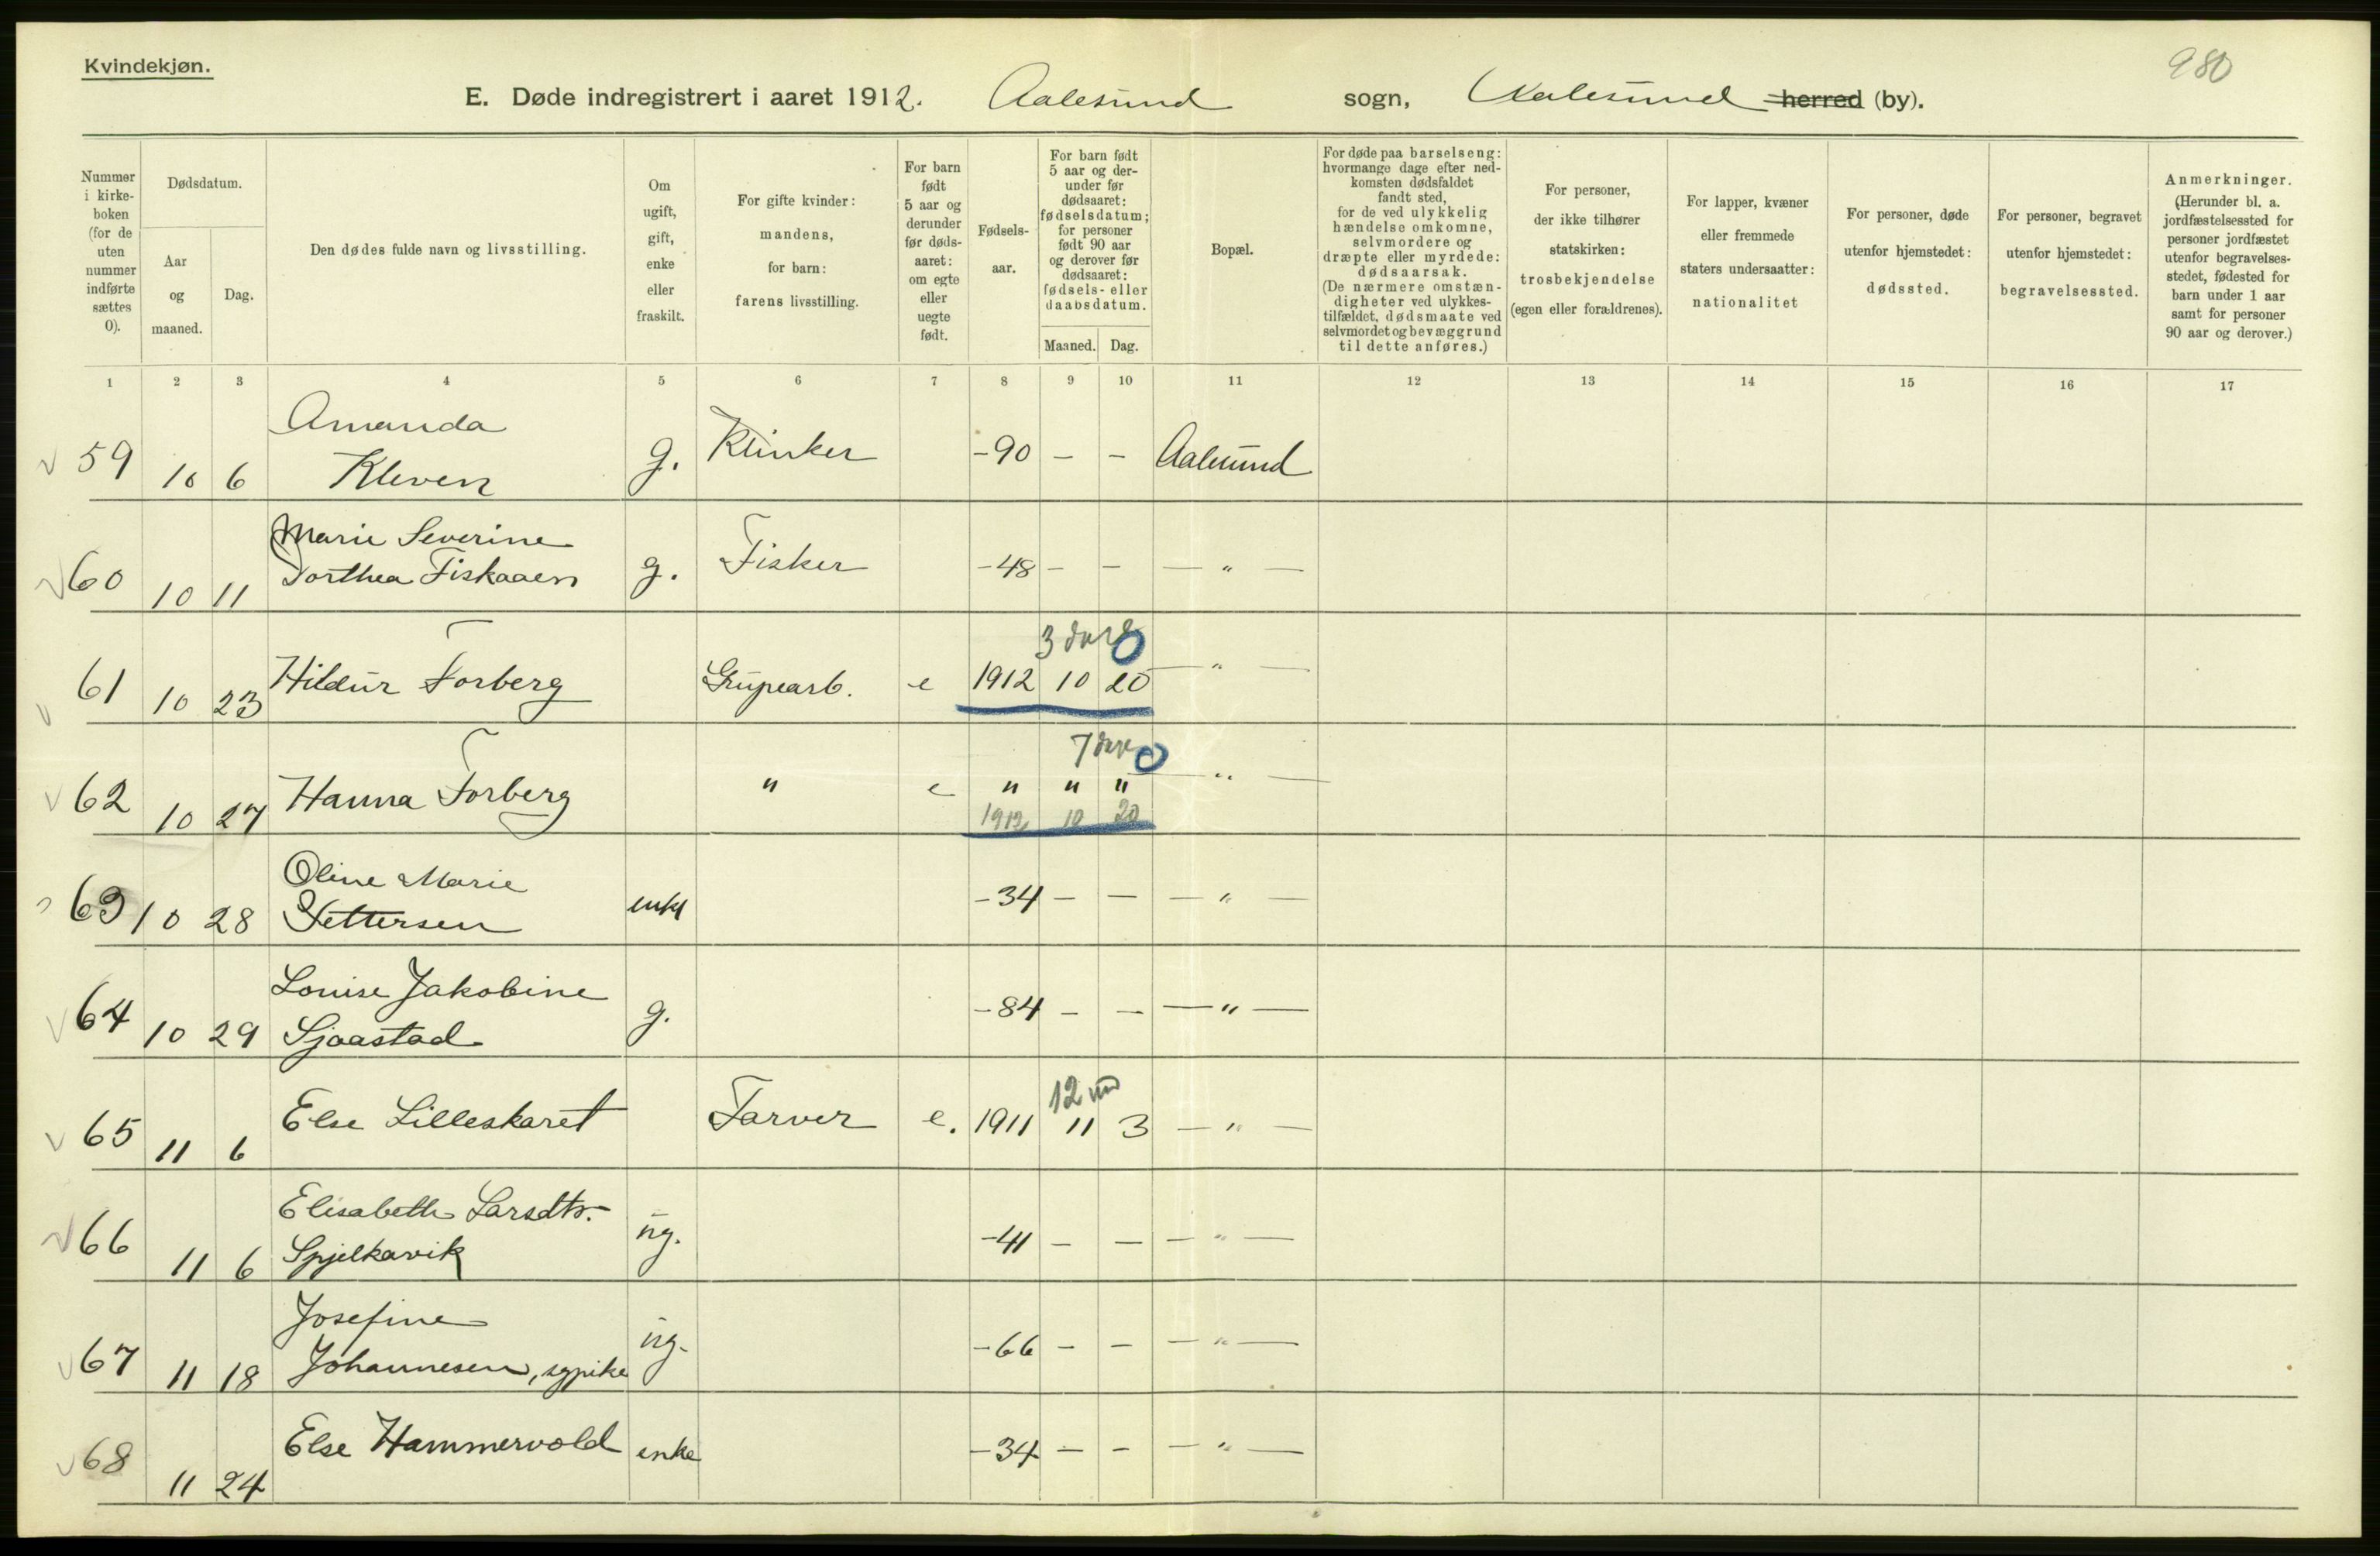 Kvindekjøn.
980
E. Døde indregistrert i aaret 1912. Aalesund sogn, Aalesund herred (by).
Nummer i kirke-boken (for de uten nummer indførte sættes 0).
Dødsdatum.
Aar og maaned.
Dag.
Den dødes fulde navn og livsstilling.
Om ugift, gift, enke eller fraskilt.
For gifte kvinder: mandens, for barn: farens livsstilling.
For barn født 5 aar og derunder før døds-aaret: om egte eller uegte født.
Fødsels-aar.
For barn født 5 aar og der-under før dødsaaret: fødselsdatum; for personer født 90 aar og derover før dødsaaret: fødsels- eller daabsdatum.
Maaned. Dag.
Bopæl.
For døde paa barselseng: hvormange dage efter ned-komsten dødsfaldet fandt sted, for de ved ulykkelig hændelse omkomne, selvmordere og dræpte eller myrdede: dødsaarsak. (De nærmere omstæn-digheter ved ulykkes-tilfældet, dødsmaate ved selvmordet og bevæggrund til dette anføres.)
For personer, der ikke tilhører statskirken: trosbekjendelse (egen eller forældrenes).
For lapper, kvæner eller fremmede staters undersaatter: nationalitet
For personer, døde utenfor hjemstedet: dødssted.
For personer, begravet utenfor hjemstedet: begravelsessted.
Anmerkninger. (Herunder bl. a. jordfæstelsessted for personer jordfæstet utenfor begravelses-stedet, fødested for barn under 1 aar samt for personer 90 aar og derover.)
1 2 3 4 5 6 7 8 9 10 11 12 13 14 15 16 17
59 10 6 Amanda Kleven g. Klinker -90 - - Aalesund
60 10 11 Marie Severine Dorthea Fiskaaen g. Fisker -48 - - — " —
3 dage 0
61 10 23 Hildur Forberg Grupearb. e 1912 10 20 — " —
7 dage 0
62 10 27 Hanna Forberg " e " " " — " —
1912 10 20
63 10 28 Oline Marie Pettersen enke -34 - - — " —
64 10 29 Louise Jakobine Sjaastad g. -84 - - — " —
12 md
65 11 6 Else Lilleskaret Farver e. 1911 11 3 — " —
66 11 6 Elisabeth Larsdtr. Spjelkavik ug. -41 - - — " —
67 11 18 Josefine Johannesen, sypike ug. -66 - - — " —
68 11 24 Else Hammervold enke -34 - - — " —